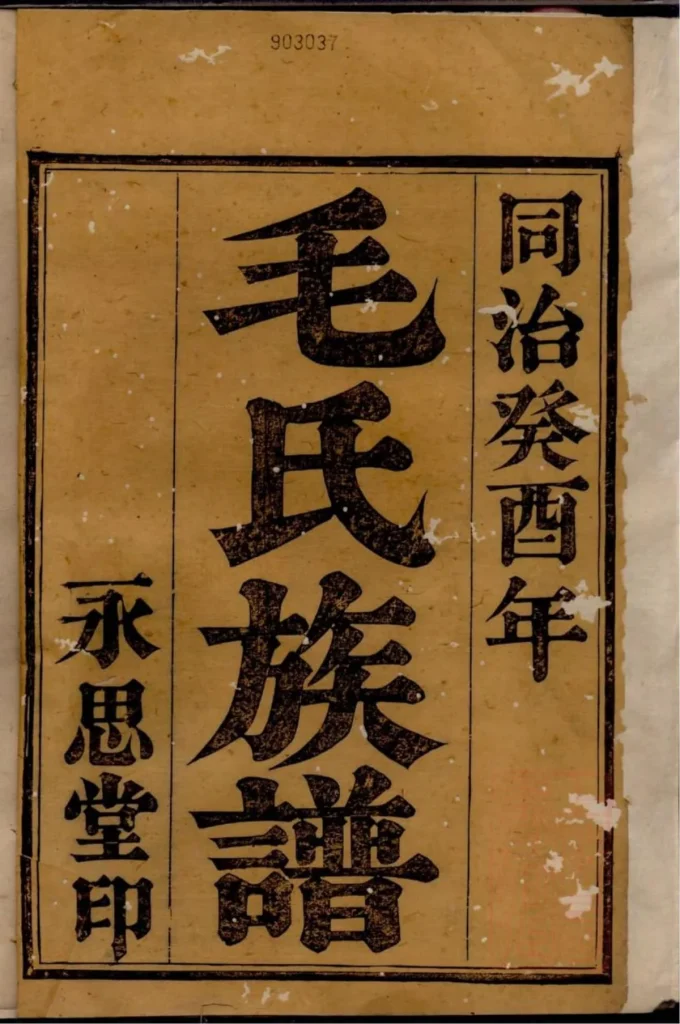 903037
同治癸酉年
毛氏族譜
永思堂印